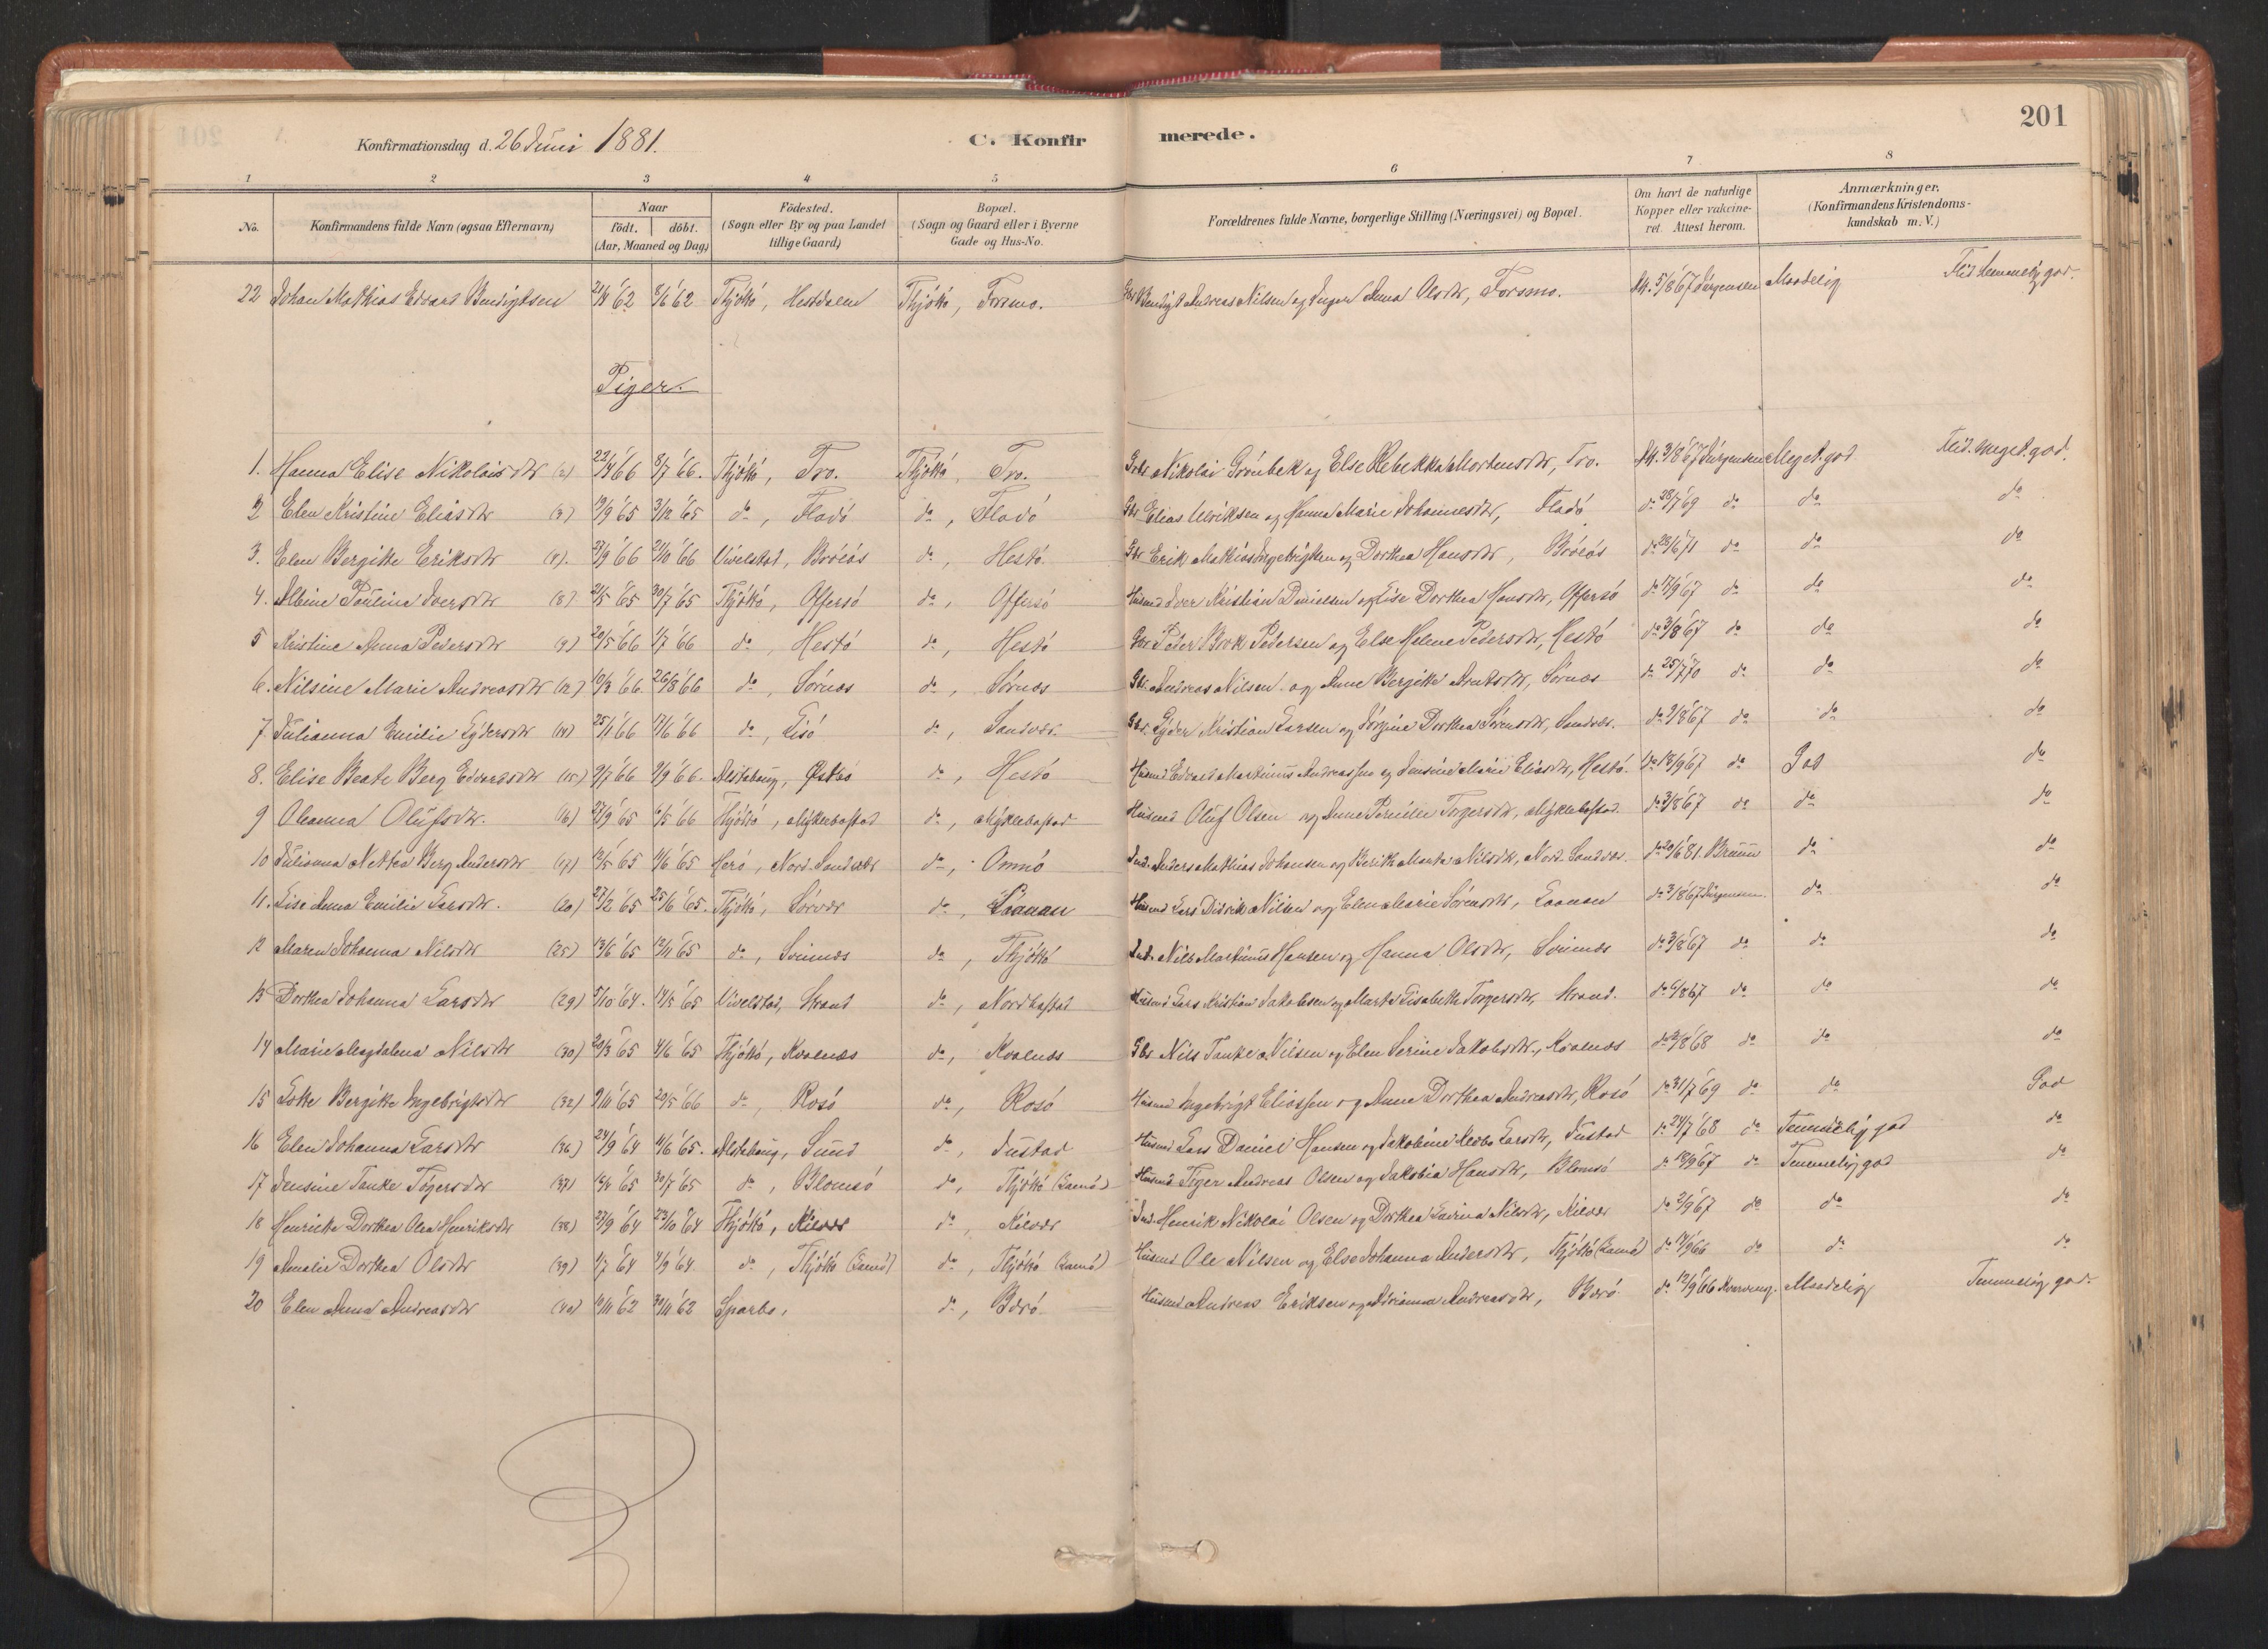 201
Konfirmationsdag d. 26 Juni 1881. C. Konfirmerede.
1 2 3 4 5 6 7 8
No. Konfirmandens fulde Navn (ogsaa Efternavn) Naar födt. döbt. (Aar, Maaned og Dag) Födested. (Sogn eller By og paa Landet tillige Gaard) Bopæl. (Sogn og Gaard eller i Byerne Gade og Hus-No. Forældrenes fulde Navne, borgerlige Stilling (Næringsvei) og Bopæl. Om havt de naturlige Kopper eller vakcineret. Attest herom. Anmærkninger. (Konfirmandens Kristendomskundskab m. V.)
22 Johan Mathias Edvard Bendigtsen 21/4 '62 8/6 '62 Thjöttö, Hestdalen Thjöttö, Forsmo. Gbr Bendigt Andreas Nilsen og Inger Anna Olsdtr, Forsmo. Att. 5/8 '67 Jörgensen Maadelig Flid temmelig god.
Piger.
1. Hanna Elise Nikolaisdtr (2) 22/4 '66 8/7 '66. Thjöttö, Tro. Thjöttö, Tro. Gbr Nikolai Grönbek og Else Rebekka Mortensdtr, Tro. Att. 3/8 '67 Jörgensen Meget god Flid meget god.
2 Elen Kristine Eliasdtr (3) 19/9 '65 3/12 '65 do, Fladö do, Fladö Gbr Elias Ulriksen og Hanna Marie Johannesdtr, Fladö do 28/7 '69 do do do
3. Elen Bergitte Eriksdtr (4). 27/9 '66 21/10 '66 Vivelstad, Bröläs do, Hestö. Gbr Erik Mathias Ingebrigtsen og Dorthea Hansdtr, Bröläs do 28/6 '71 do do do
4. Albine Pauline Iversdtr (8) 21/5 '65 30/7 '65 Thjöttö, Offersö do, Offersö Husmd Iver Kristian Danielsen og Lise Dorthea Hansdtr, Offersö do 17/9 '67 do do do
5 Kristine Anna Pedersdtr (9) 20/5 '66 1/7 '66 do, Hestö do, Hestö Gbr Peder Brok Pedersen og Else Helene Pedersdtr, Hestö do 3/8 '67 do do do
6. Nilsine Marie Andreasdtr (12) 10/3 '66. 26/8 '66 do, Sörnæs do, Sörnæs Gbr. Andreas Nilsen og Anne Bergitte Arntsdtr, Sörnæs do 25/7 '70 do do do
7 Julianna Emilie Lydersdtr (14) 25/1 '66 17/6 '66 do, Tisö do, Sandvær. Gbr. Lyder Kristian Larsen og Jörgine Dorthea Sörensdtr, Sandvær. do 9/8 '67 do do do
8. Elise Beate Berg Edvardsdtr (15) 9/7 '66 2/9 '66. Alstahaug, Östbö do, Hestö Husmd Edvard Martinus Andreassen og Jensine Marie Eliasdtr, Hestö. do 18/9 '67 do God do
9 Oleanna Olufsdtr. (16) 27/9 '65 6/5 '66 Thjöttö, Myklebostad do, Myklebostad Husmd Oluf Olsen og Anne Pernille Torgersdtr, Myklebostad. do 3/8 '67 do do do
10 Julianna Nettea Berg Andersdtr (17) 12/5 '65 4/6 '65 Herö, Nord-Sandvær do, Omnö Ind. Anders Mathias Johansen og Berith Marta Nilsdtr, Nord-Sandvær. do 20/6 '81. Bruun do do
11. Lise Anna Emilie Larsdtr. (20) 27/2 '65 25/6 '65. Thjöttö, Sörvær do, Laanan Husmd Lars Didrik Nilsen og Elen Marie Sörensdtr, Laanan do 3/8 '67 Jörgensen. do do
12 Maren Johanna Nilsdtr (25) 13/6 '65 12/11 '65 do, Svinnæs do, Thjöttö Ind. Nils Martinus Hansen og Hanna Olsdtr, Svinnæs do 3/8 '67 do do do
13 Dorthea Johanna Larsdtr (29) 5/10 '64. 14/5 '65 Vivelstad, Strand do, Nordbostad Husmd Lars Kristian Jakobsen og Marta Lisabeth Torgersdtr, Strand. do 6/8 '67 do do do
14 Marie Magdalena Nilsdtr (30) 20/3 '65 4/6 '65 Thjöttö, Kvalnæs do, Kvalnæs Gbr Nils Tanke Nilsen og Elen Serine Jakobsdtr, Kvalnæs do 12/8 '68 do do do
15 Lotte Bergitte Ingebrigtsdtr (32) 9/11 '65 20/5 '66 do, Rosö do, Rosö Husmd Ingebrigt Eliassen og Anne Dorthea Andreasdtr, Rosö do 31/7 '69 do do God
16 Elen Johanna Larsdtr (36) 24/9 '64 11/6 '65. Alstahaug, Sund do, Justad Husmd Lars Daniel Hansen og Jakobine Larsdtr, Justad do 24/7 '68 do Temmelig god do
17 Jensine Tanke Tögersdtr (37) 16/4 '65 30/7 '65 do, Blomsö do, Thjöttö (Gamö) Husmd Töger Andreas Olsen og Jakobia Hansdtr, Blomsö do 18/9 '67 do Temmelig god do
18 Henriette Dorthea Olea Henriksdtr (38) 27/9 '64 23/10 '64 Thjöttö, Kilvær do, Kilvær Ind. Henrik Nikolai Olsen og Dorthea Lavina Nilsdtr, Kilvær do 2/9 '67 do do do
19 Amalie Dorthea Olsdtr (39) 1/7 '64 4/9 '64 do, Thjöttö (Gamö) do, Thjöttö (Gamö) Husmd Ole Nilsen og Else Johanna Andersdtr, Thjöttö (Gamö) do 14/9 66 do do do
20 Elen Anna Andreasdtr (40) 10/11 '62 30/11 '62 Sparbo, do, Bærö Husmd Andreas Eriksen og Adrianna Andreasdtr, Bærö do 12/9 '66 Kverveng. Maadelig Temmelig god.